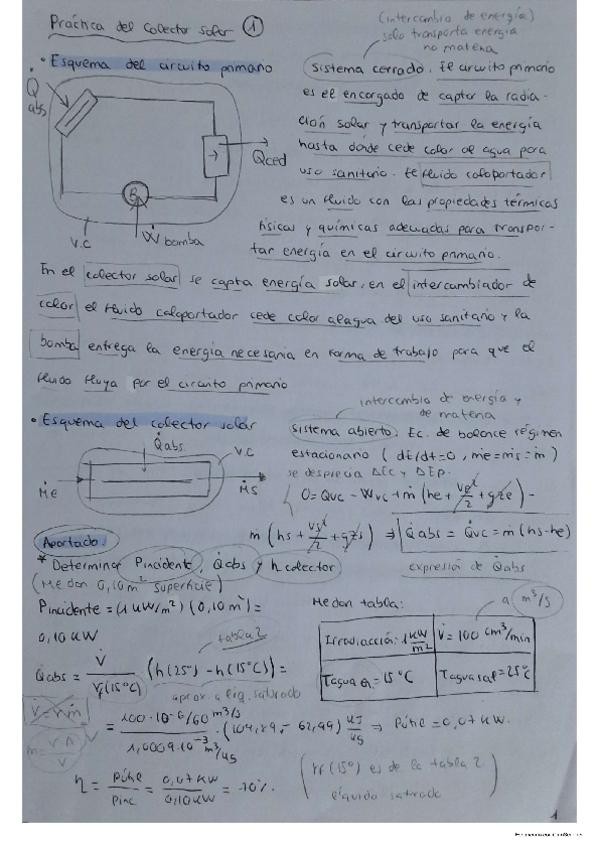 Práctica del colector solar 1
(intercambio de energía)
solo transporta energía
no materia
• Esquema del circuito primario
Sistema cerrado. El circuito primario
es el encargado de captar la radia-
ción solar y transportar la energía
hasta donde cede calor al agua para
uso sanitario. El fluido caloportador
es un fluido con las propiedades térmicas
físicas y químicas adecuadas para transpor-
tar energía en el circuito primario.
Q abs
Qced
B
V.C
Ẇ bomba
En el colector solar se capta energía solar, en el intercambiador de
calor el fluido caloportador cede calor al agua del uso sanitario y la
bomba entrega la energía necesaria en forma de trabajo para que el
fluido fluya por el circuito primario
intercambio de energía y
de materia
• Esquema del colector solar
Q̇abs.
V.C
ṁe
ṁs
Sistema abierto. Ec. de balance régimen
estacionario (dE/dt=0, ṁe=ṁs=ṁ)
se desprecia ΔEc y ΔEp.
0=Qvc - Wvc + ṁ(he + ve²/2 + gze) -
ṁ(hs + vs²/2 + gzs) ⇒ Q̇abs = Q̇vc = ṁ(hs-he)
expresión de Q̇abs
Apartado.
* Determinar Pincidente, Q̇abs y η colector
(Me dan 0,10 m² superficie)
Pincidente = (1 kW/m²)(0,10 m²) =
0,10 kW
Me dan tabla:
a m³/s
Irradiacción: 1 kW/m²
V̇ = 100 cm³/min
Tagua en = 15°C
Tagua sal = 25°C
tabla 2
Q̇abs = V̇/Vf(15°C) (h(25°) - h(15°C)) =
aprox a líq. saturado
= 100·10⁻⁶/60 m³/s / 1,0009·10⁻³ m³/kg · (104,89 - 62,99) kJ/kg ⇒ Pútil = 0,07 kW.
η = Pútil/Pinc = 0,07 kW/0,10 kW = 70%
(vf(15°) es de la tabla 2
líquido saturado)
1